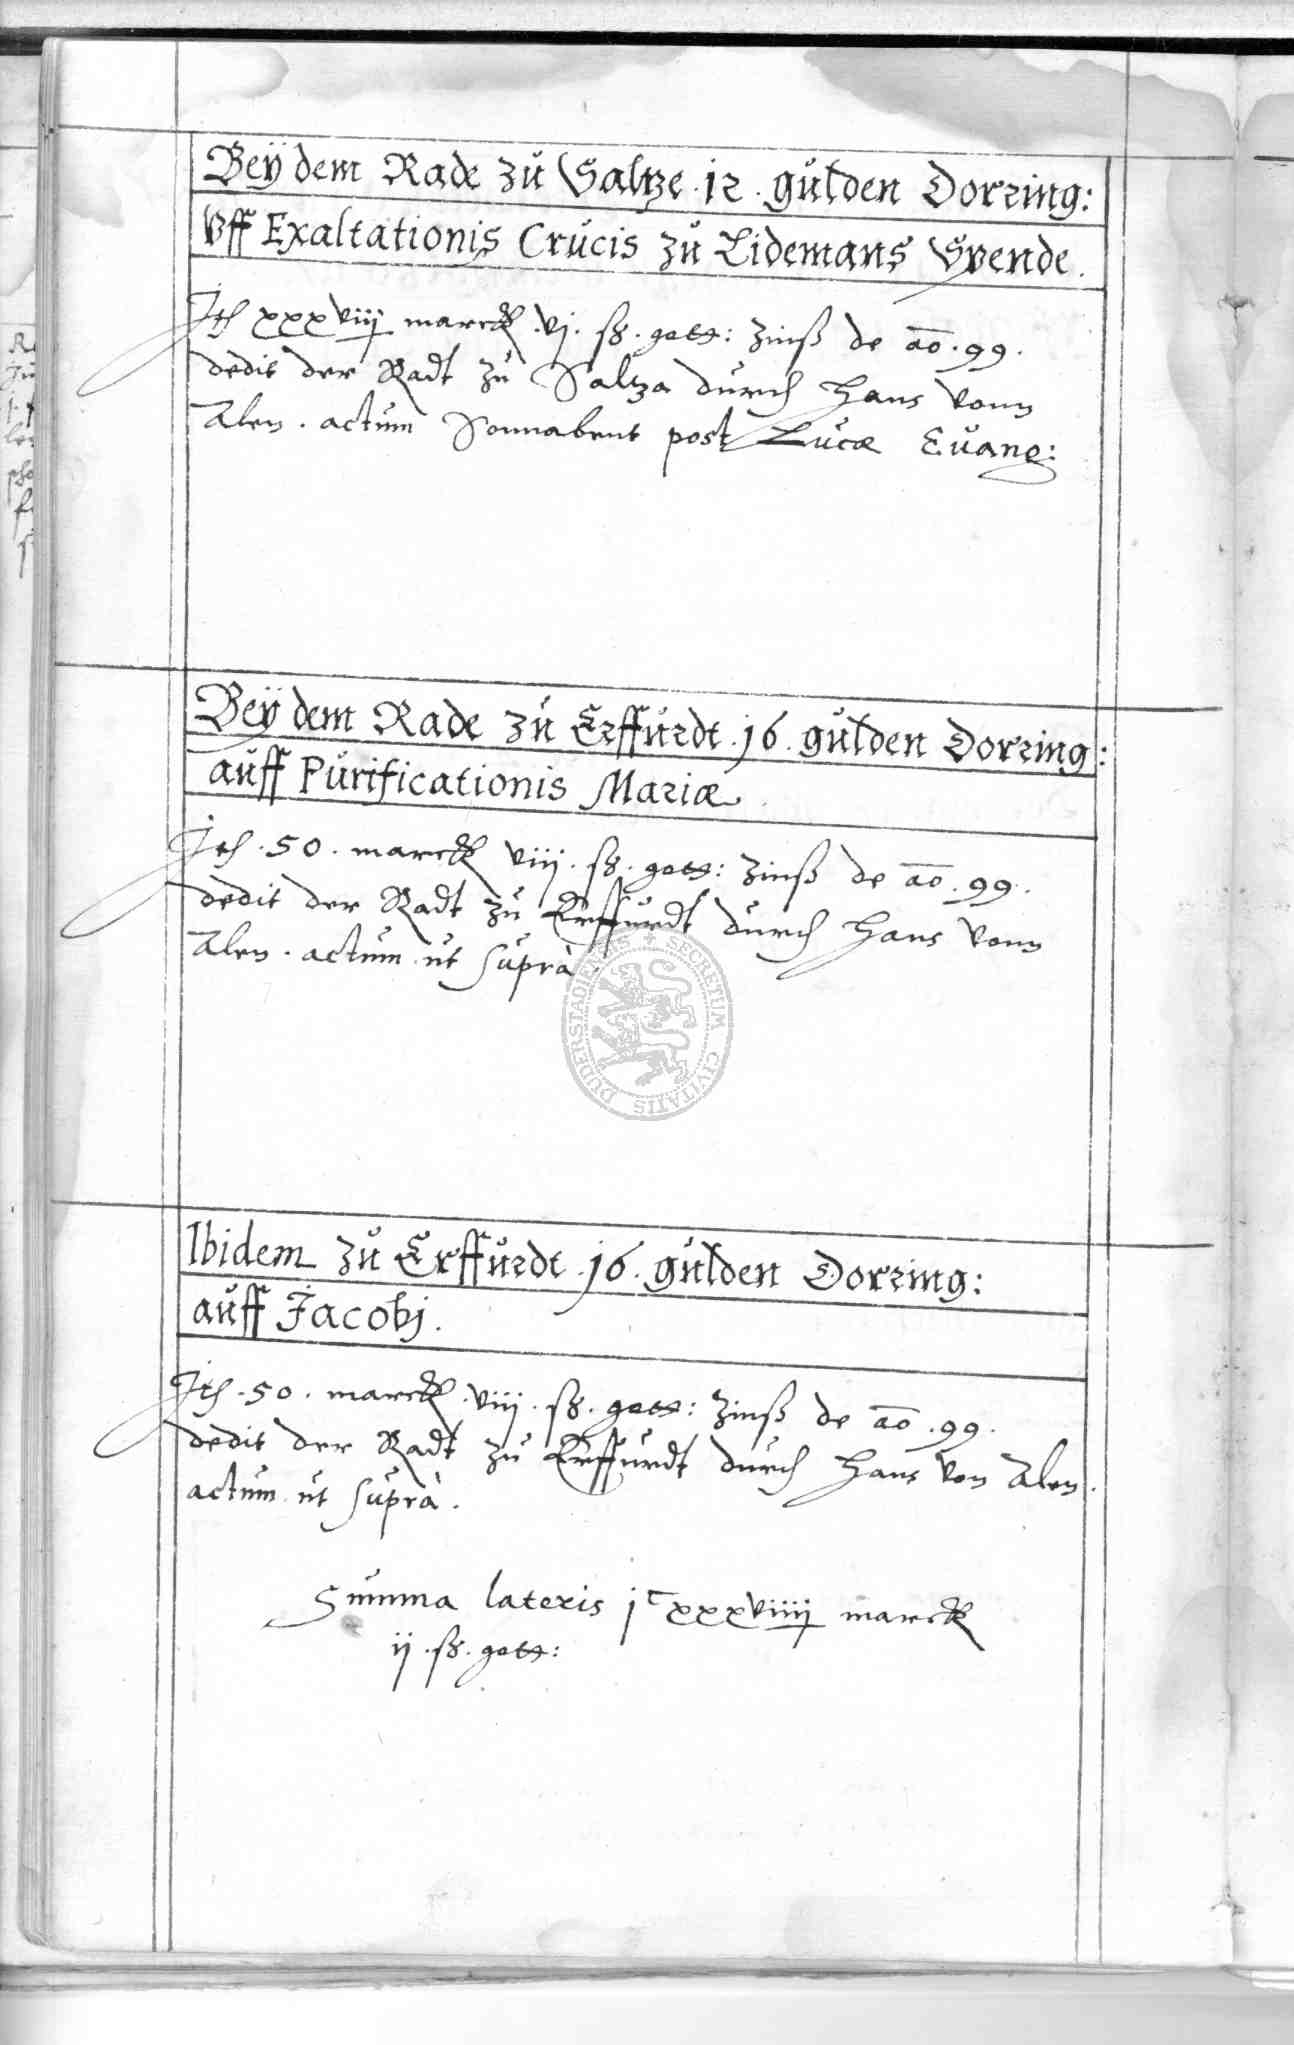 Beÿ dem Rade zu Saltze . 12 . gulden Dorring:
Vff Exaltationis Crucis zu Lidemans Spende .
xxxviij marck . vj . ß . gott: Zinß de ao . 99 .
dedit der Radt zu Saltza durch Hans vonn
Alen . actum Sonnabent post Lucæ Evang:
Beÿ dem Rade zu Erffurdt . 16 . gulden Dorring:
auff Purificationis Mariæ .
. 50 . marck viij . ß . gott: Zinß de ao . 99 .
dedit der Radt zu Erffurdt durch Hans vonn
Alen . actum ut suprà .
Ibidem zu Erffurdt . 16 . gulden Dorring:
auff Jacobj .
. 50 . marck . viij . ß . gott: Zinß de ao . 99 .
dedit der Radt zu Erffurdt durch Hans von Alen .
actum ut suprà .
Summa lateris jc xxxviiij marck
ij . ß . gott:
SECRETUM CIVITATIS DUDERSTADIENSIS